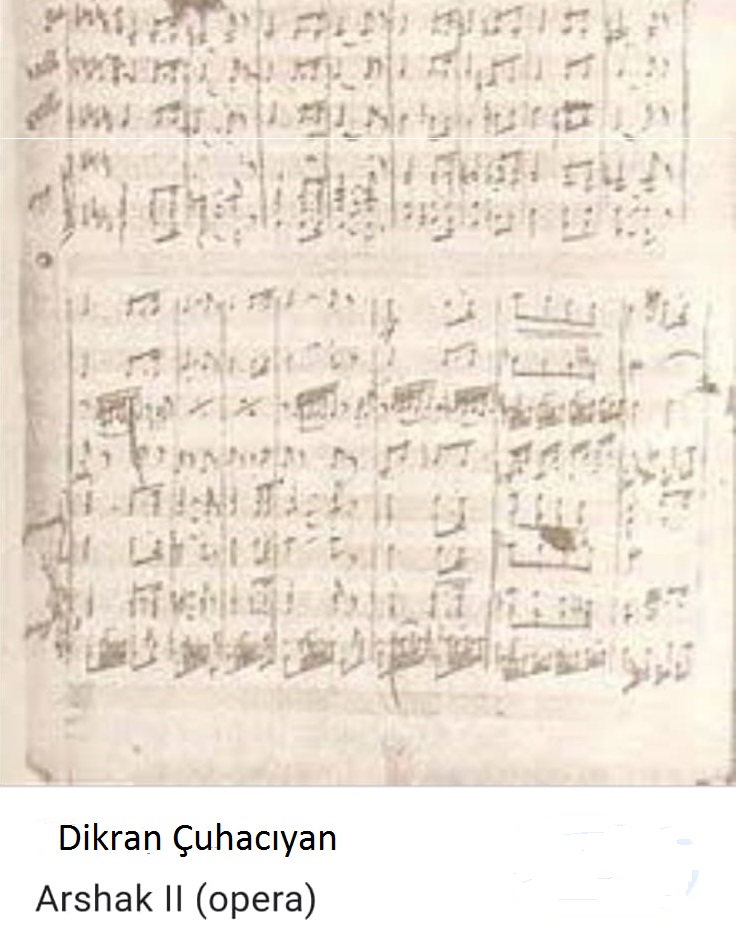 Dikran Çuhacıyan
Arshak II (opera)